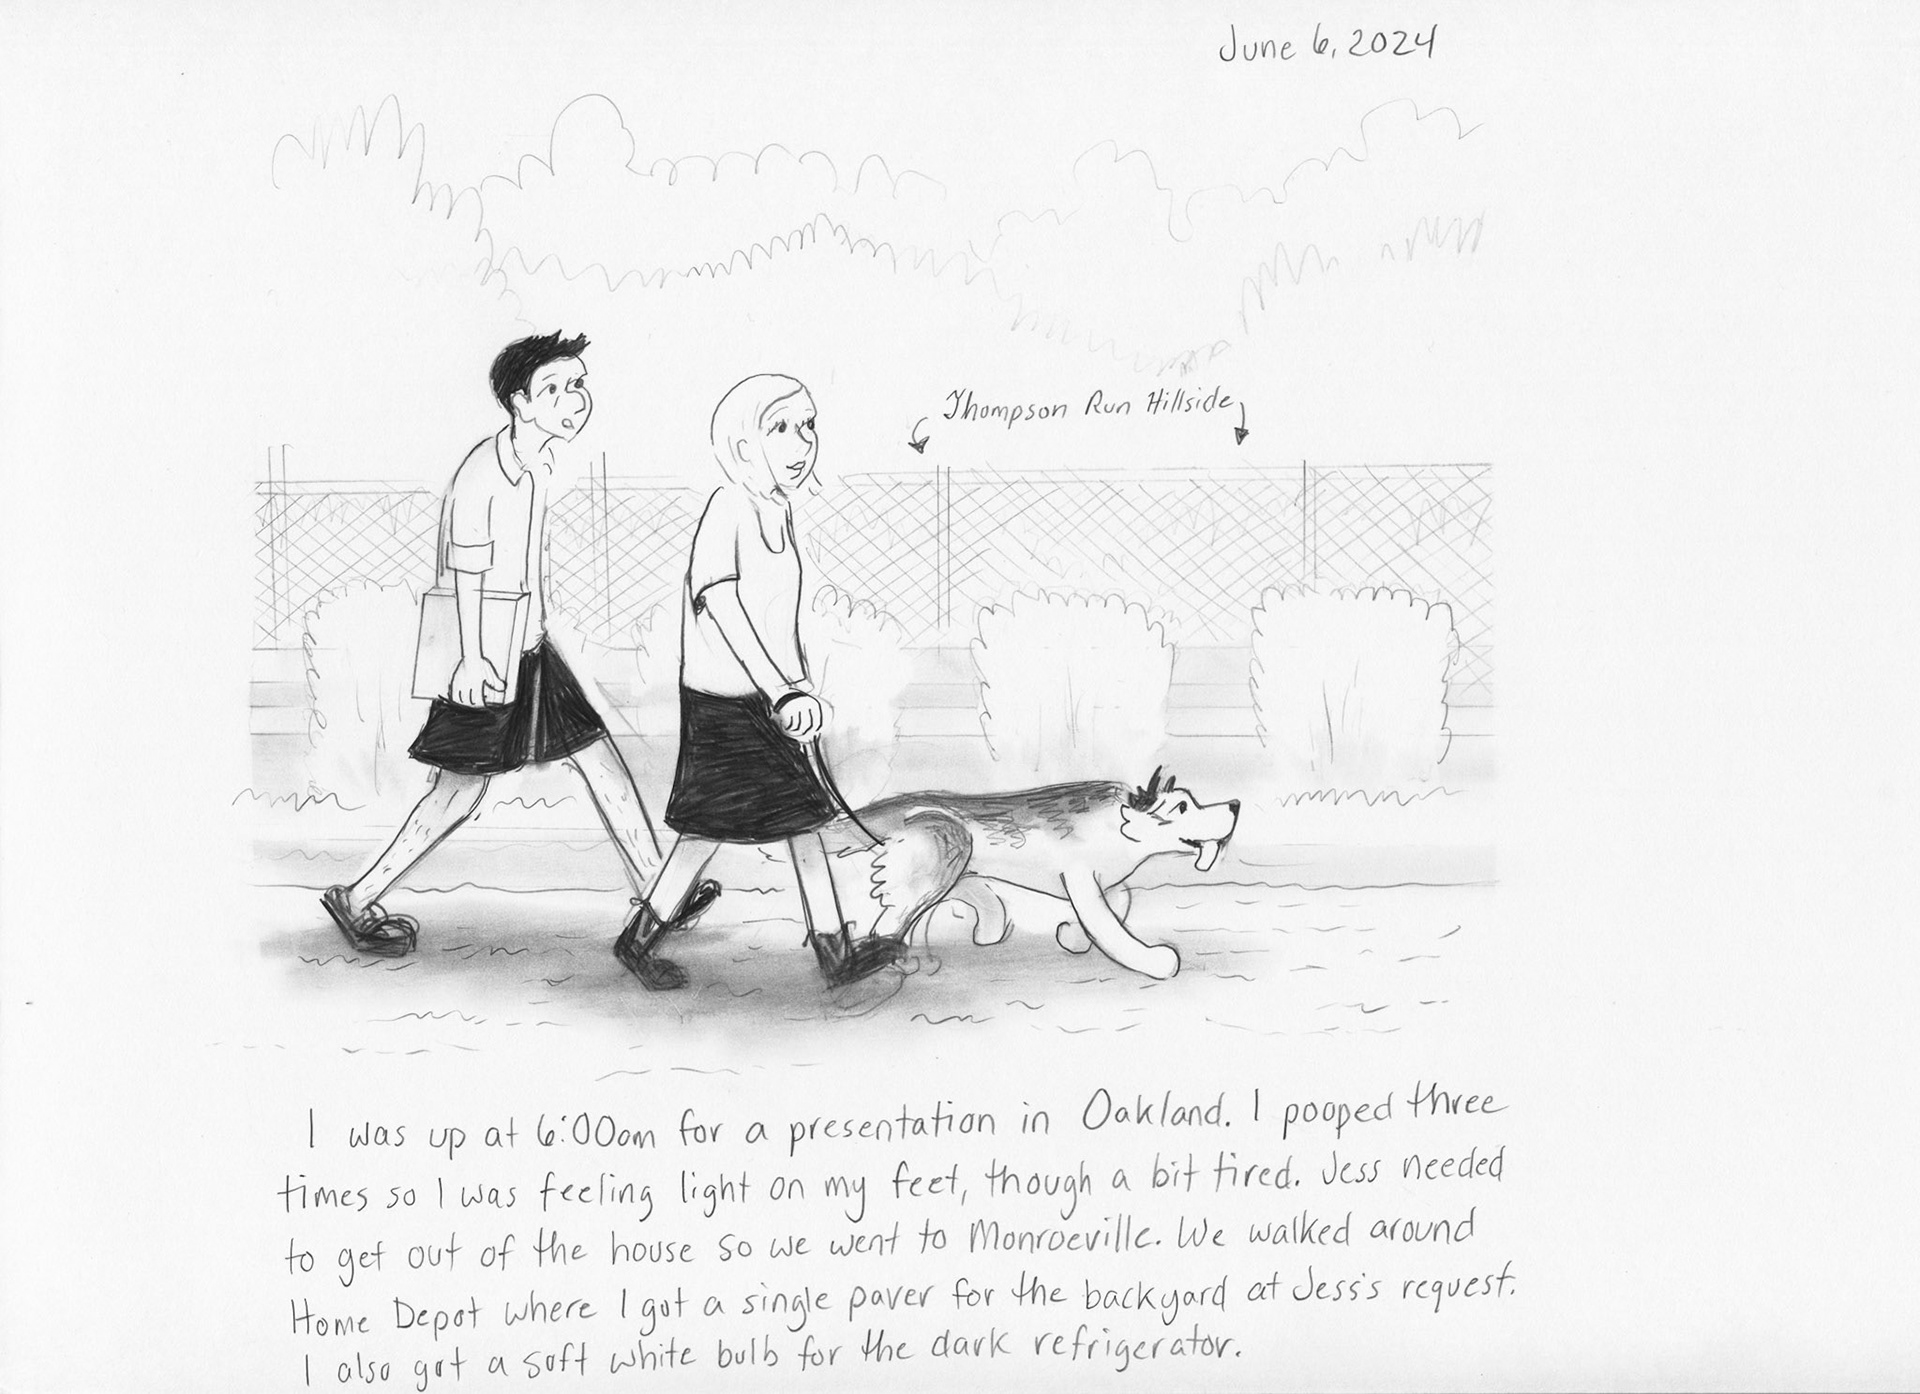 June 6, 2024
Thompson Run Hillside
I was up at 6:00am for a presentation in Oakland. I pooped three
times so I was feeling light on my feet, though a bit tired. Jess needed
to get out of the house so we went to Monroeville. We walked around
Home Depot where I got a single paver for the backyard at Jess's request.
I also got a soft white bulb for the dark refrigerator.